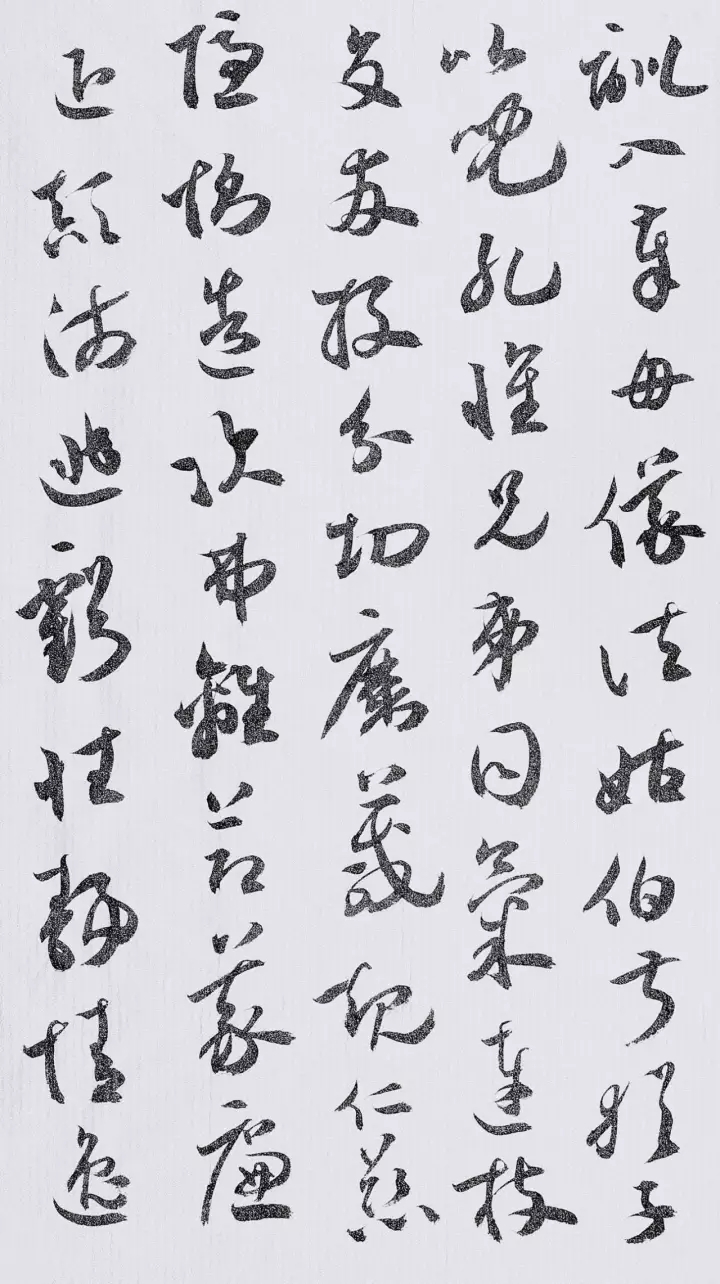 訓入奉母儀諸姑伯叔猶子
比兒孔懷兄弟同氣連枝
交友投分切磨箴規仁慈
隱惻造次弗離節義廉
退顛沛匪虧性靜情逸